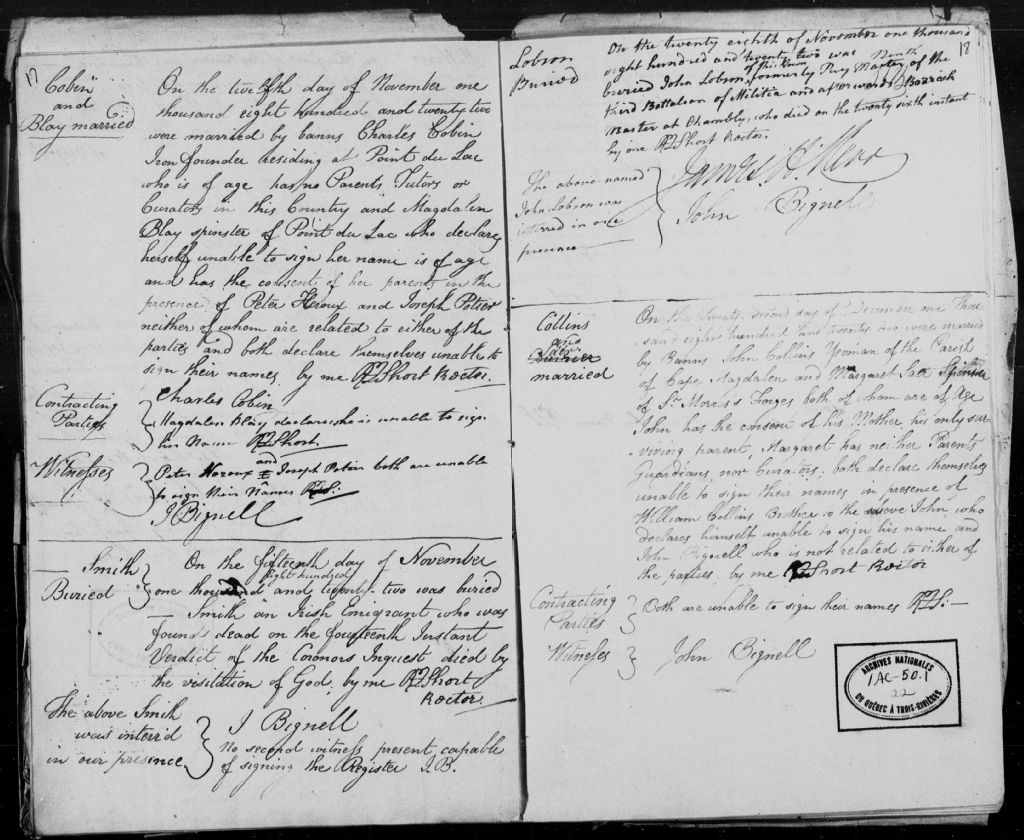 17
Cobin
and
Blay married
On the twelfth day of November one
thousand eight hundred and twenty two
were married by banns Charles Cobin
Iron founder residing at Point du Lac
who is of age has no Parents Tutors or
Curators in this Country and Magdalen
Blay spinster of Point du Lac who declares
herself unable to sign her name is of age
and has the consent of her parents in the
presence of Peter Heroux and Joseph Potier
neither of whom are related to either of the
parties and both declare themselves unable to
sign their names, by me RQShort Rector.
Contracting
Parties
Charles Cobin
Magdalen Blay declares she is unable to sign
her Name RQShort
Witnesses
Peter Heroux and Joseph Potier both are unable
to sign their Names RQS:
J Bignell
— Smith
Buried
On the fifteenth day of November
one thousand eight hundred and twenty-two was buried
— Smith an Irish Emigrant who was
found dead on the fourteenth Instant
Verdict of the Coronors Inquest died by
the visitation of God, by me RQShort
Rector.
The above Smith
was interr'd
in our presence
J Bignell
No second witness present capable
of signing the Register J.B.
18
Lobson
Buried
On the twenty eighth of November one thousand
eight hundred and twenty two was
buried John Lobson, of this Town formerly Pay Master of the
third Battalion of Militia and afterwards Barrack
Master at Chambly, who died on the twenty sixth instant
by me RQShort Rector.
The above named
John Lobson was
interred in our
presence
James H. Kerr
John Bignell
Collins
and
married
On the twenty second day of December one thou
sand eight hundred and twenty two were married
by Banns John Collins Yeoman of the Parish
of Cape Magdalen and Margaret Spinster
of St. Morris's Forges both of whom are of Age
John has the consent of his Mother, his only sur
viving parent, Margaret has neither Parents
Guardians, nor Curators, both declare themselves
unable to sign their names in presence of
William Collins Brother to the above John, who
declares himself unable to sign his name and
John Bignell who is not related to either of
the parties, by me RQShort Rector
Contracting
Parties
Both are unable to sign their names RQS:—
Witnesses
John Bignell
ARCHIVES NATIONALES
1AC-50.1
22
DU QUÉBEC À TROIS-RIVIÈRES